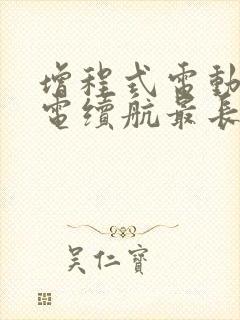 增程式電動
電續航最長
吳仁寶